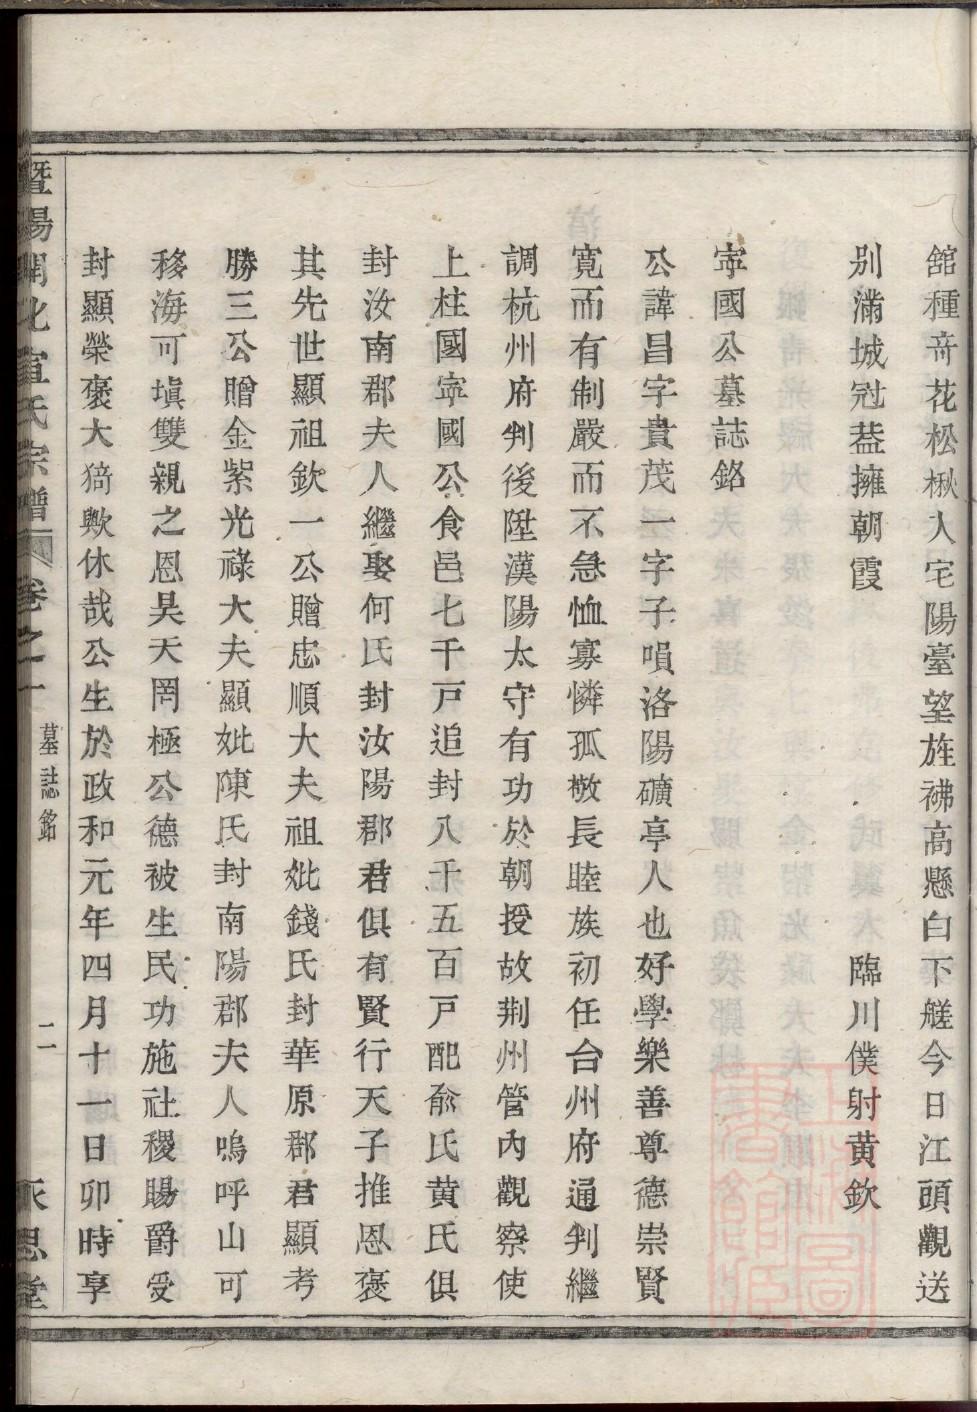 舘種竒花松楸人宅陽臺望旌裶髙懸白下艖今日江頭觀送
别滿城冠葢擁朝霞　臨川僕射黄欽
寜國公墓誌銘
公諱昌字貴茂一字子嗊洛陽礦亭人也好學樂善尊德崇賢
寬而有制嚴而不急恤寡憐孤敬長睦族初任台州府通判繼
調杭州府判後陞漢陽太守有功於朝授故荆州管内觀察使
上柱國寜國公食邑七千戸追封八千五百戸配俞氏黄氏俱
封汝南郡夫人繼娶何氏封汝陽郡君俱有賢行天子推恩褒
其先世顯祖欽一公贈忠順大夫祖妣錢氏封華原郡君顯考
勝三公贈金紫光祿大夫顯妣陳氏封南陽郡夫人嗚呼山可
移海可塡雙親之恩昊天罔極公德被生民功施社稷賜爵受
封顯榮褒大猗歟休哉公生於政和元年四月十一日卯時享
暨陽開化宣氏宗譜　卷之一　墓誌銘　二　永思堂